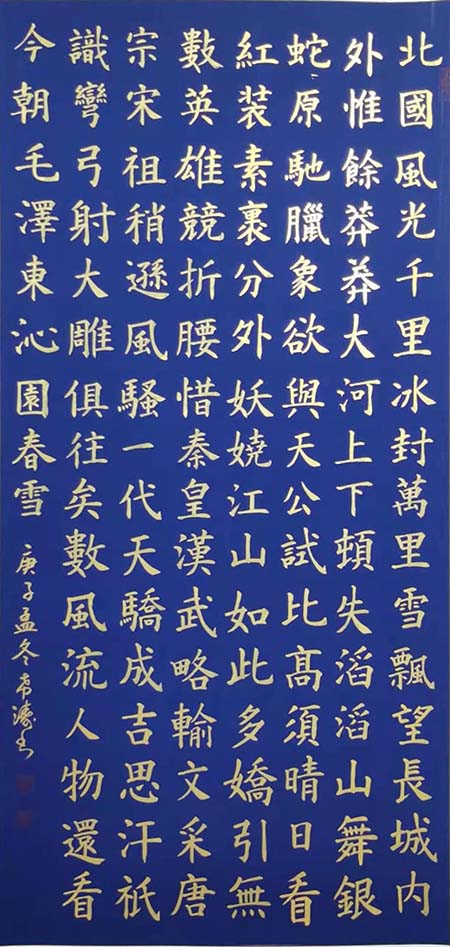 北國風光千里冰封萬里雪飄望長城内
外惟餘莽莽大河上下頓失滔滔山舞銀
蛇原馳臘象欲與天公試比髙須晴日看
紅装素裹分外妖嬈江山如此多嬌引無
數英雄競折腰惜秦皇漢武略輸文采唐
宗宋祖稍遜風騷一代天驕成吉思汗祇
識彎弓射大雕俱往矣數風流人物還看
今朝毛澤東沁園春雪
庚子孟冬